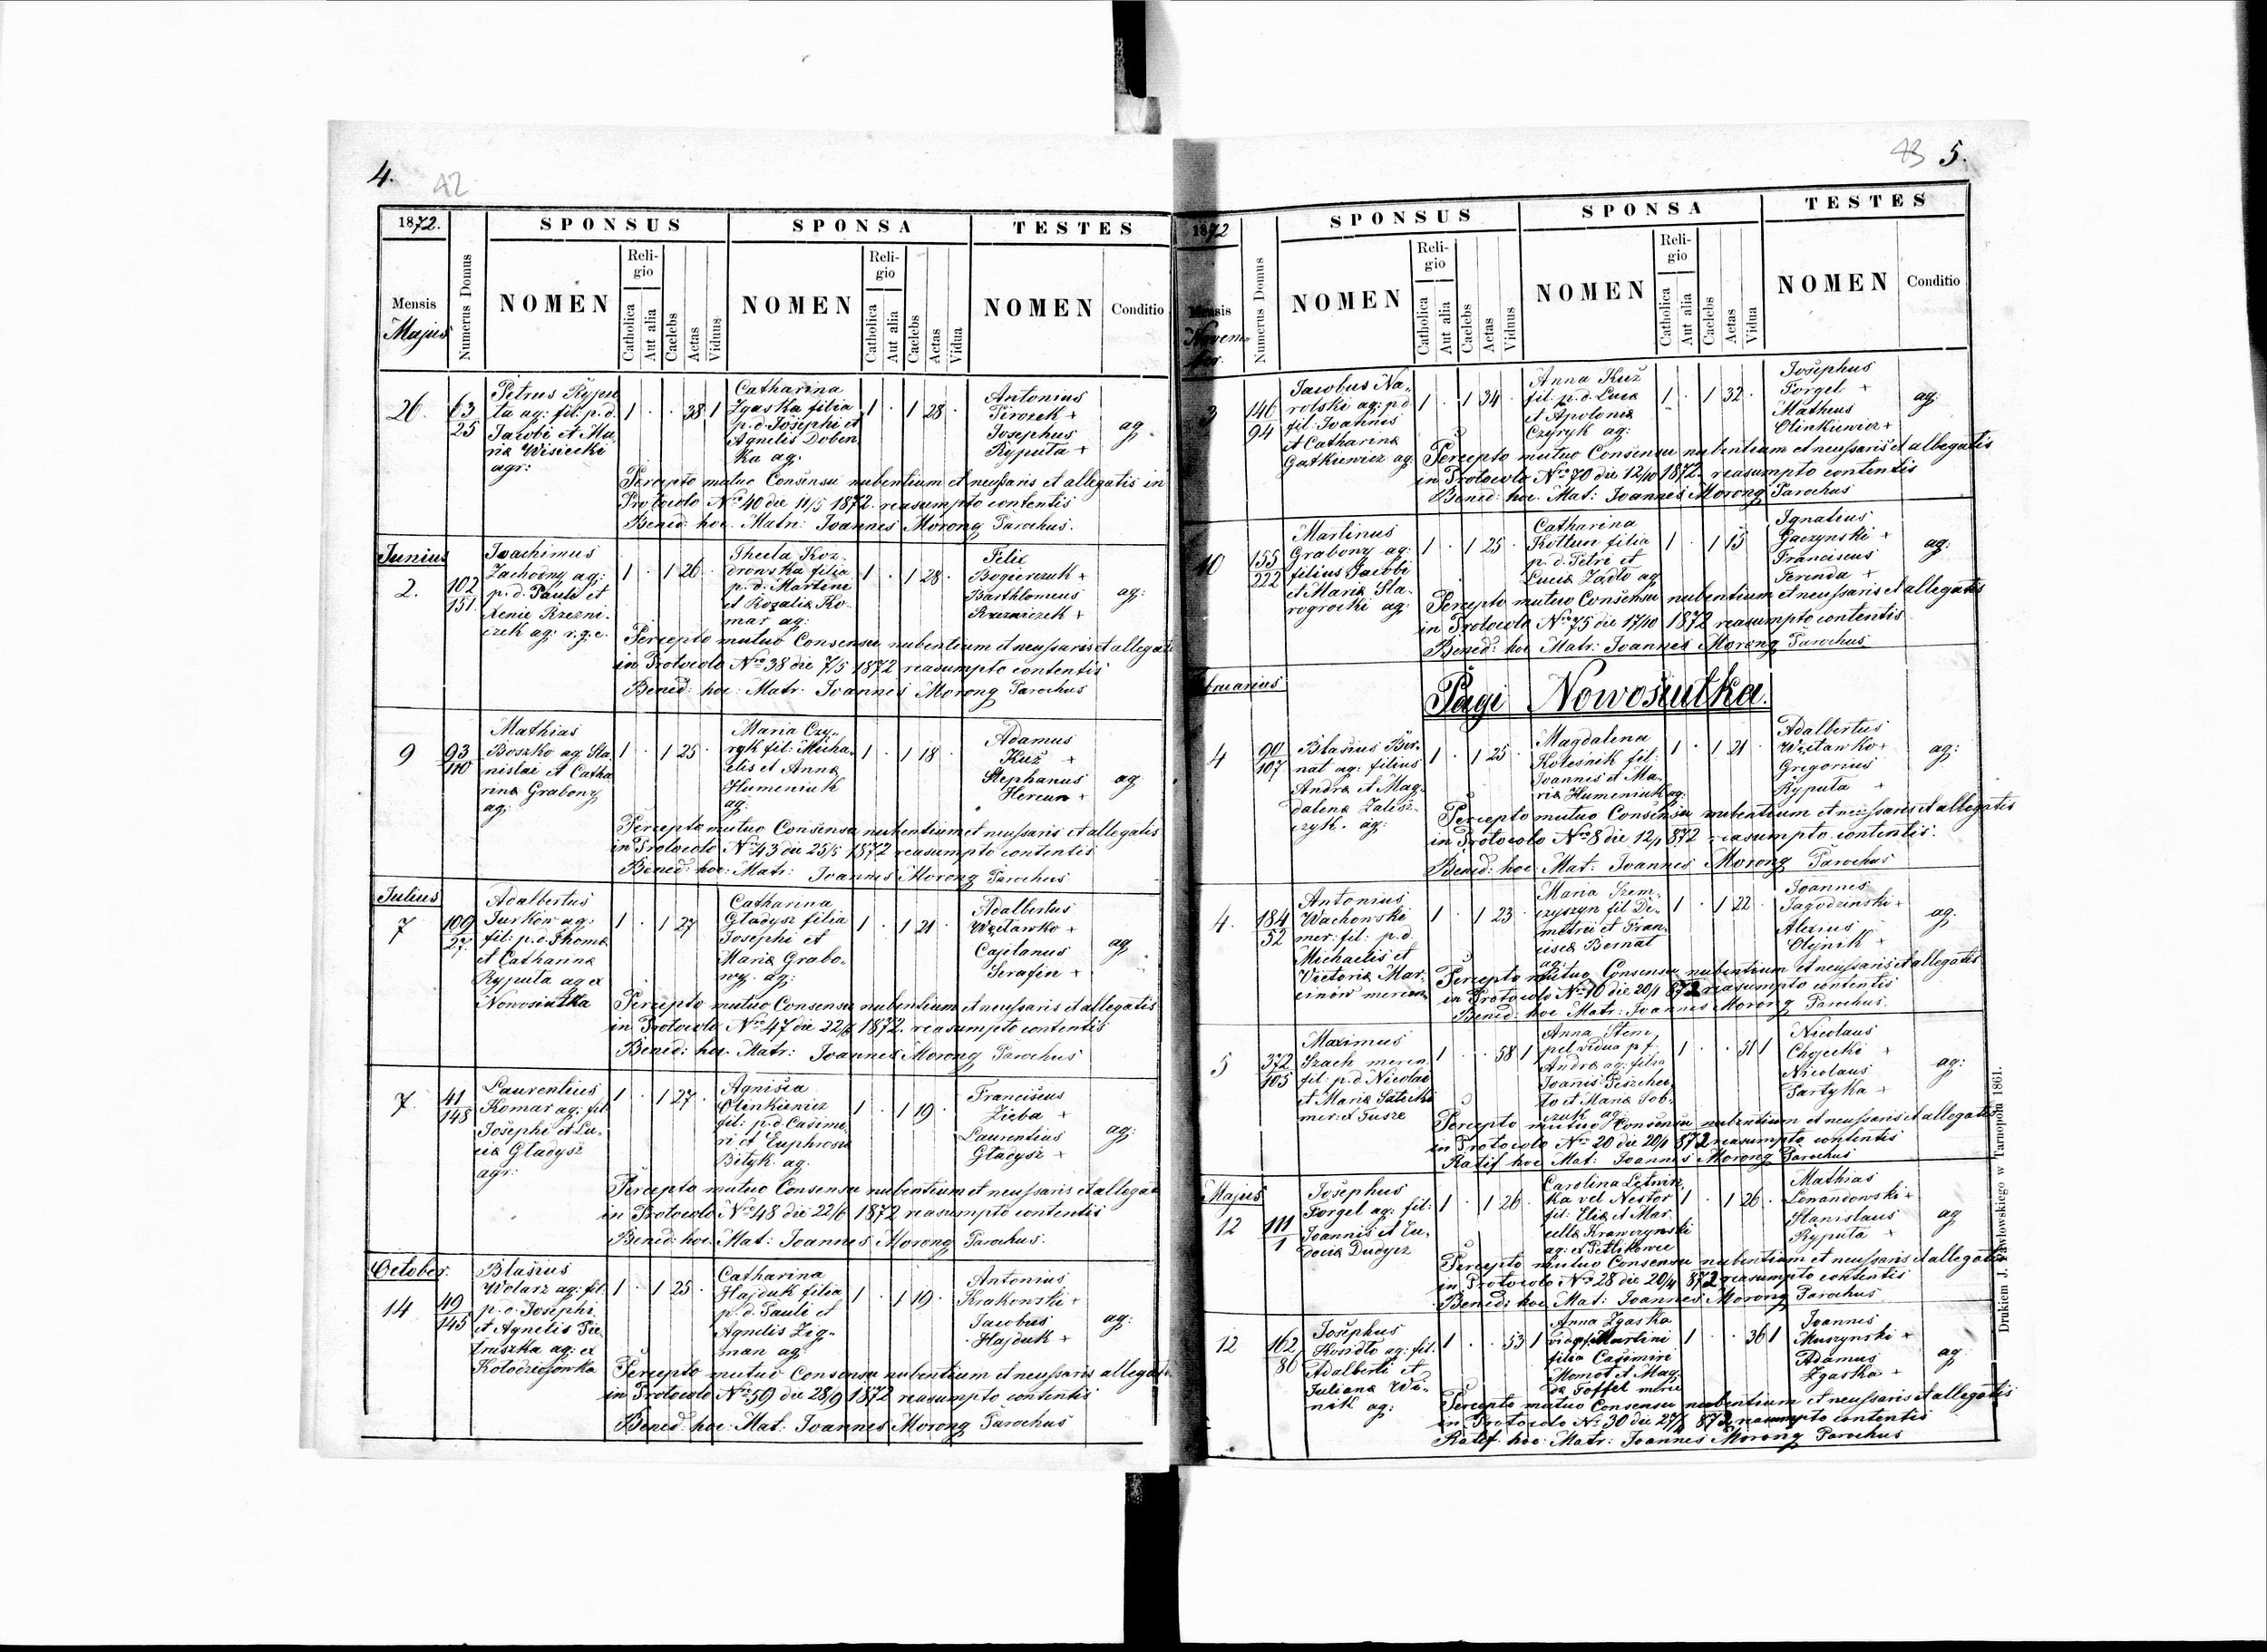 4.
42
1872.
SPONSUS
SPONSA
TESTES
Mensis
Majus
Numerus Domus
NOMEN
Religio
Catholica
Aut alia
Caelebs
Aetas
Viduus
NOMEN
Religio
Catholica
Aut alia
Caelebs
Aetas
Vidua
NOMEN
Conditio
26. 63/25
Petrus Rypu
ta ag: fil: p.d.
Jacobi et Ma
ria Wisiecki
agr:
1 . . 38 1
Catharina
Zgaska filia
p.d. Josephi et
Agnetis Doben
ka ag.
1 . 1 28 .
Antonius
Pirozek +
Josephus
Ryputa +
ag.
Percepto mutuo Consensu nubentium et neussaris et allegatis in
Protocolo Nro 40 die 11/5 1872 reasumpto contentis
Bened: hoc. Matr: Joannes Morong Parochus.
Junius
2. 102/151
Joachimus
Zachodny ag:
p.d. Paulo et
Xenie Rzezni-
czek ag: r.g.c.
1 . 1 26 .
Thecla Koz-
drowska filia
p.d. Martini
et Rozalia Ko-
mar ag:
1 . 1 28 .
Felix
Bogierczuk +
Barthlomeus
+
ag:
Percepto mutuo Consensu nubentium et neussaris et allegati
in Protocolo Nro 38 die 7/5 1872 reasumpto contentis
Bened: hoc: Matr. Joannes Morong Parochus
9 93/110
Mathias
Boszko ag Sta
nislai et Catha
rina Grabony
ag:
1 . 1 25 .
Maria Czy-
ryk fil: Micha
elis et Anna
Humeniuk
ag:
1 . 1 18 .
Adamus
Kuż +
Stephanus
Hercun +
ag
Percepto mutuo Consensu nubentium et neussaris et allegatis
in Protocolo Nro 43 die 25/5 1872 reasumpto contentis
Bened: hoc: Matr: Joannes Morong Parochus
Julius
7 109/27
Adalbertus
Jurkow ag:
fil: p.d. Thoma
et Catharina
Ryputa ag ex
Nowosiutka
1 . 1 27
Catharina
Gładysz filia
Josephi et
Maria Grabo-
ny. ag:
1 . 1 21 .
Adalbertus
Węcławko +
Cajetanus
Serafin +
ag
Percepto mutuo Consensu nubentium et neussaris et allegatis
in Protocolo Nro 47 die 22/6 1872. reasumpto contentis
Bened: hoc. Matr: Joannes Morong Parochus
7. 41/148
Laurentius
Komar ag: fil
Josephi et Lu-
cia Gładysz
agr:
1 . 1 27 .
Agnisia
Olinkiewicz
fil: p.d. Casimi-
ri et Euphrosin
Bityk. ag.
1 . 1 19 .
Franciscus
Zięba +
Laurentius
Gładysz +
ag:
Percepto mutuo Consensu nubentium et neussaris et allegat
in Protocolo Nro 48 die 22/6 1872 reasumpto contentis
Bened: hoc. Mat: Joannes Morong Parochus.
October.
14 49/145
Błasius
Wolarz ag: fil.
p.d. Josephi
et Agnetis Pie
truszka ag: ex
Kołodziejowka
1 . 1 25 .
Catharina
Hajduk filia
p.d. Pauli et
Agnetis Zig-
man ag:
1 . 1 19 .
Antonius
Krakowski +
Jacobus
Hajduk +
ag:
Percepto mutuo Consensu nubentium et neussaris allegati
in Protocolo Nro 59 die 28/9 1872 reasumpto contentis
Bened: hoc: Mat: Joannes Morong Parochus
43 5.
1872
SPONSUS
SPONSA
TESTES
Mensis
Novem-
ber.
Numerus Domus
NOMEN
Religio
Catholica
Aut alia
Caelebs
Aetas
Viduus
NOMEN
Religio
Catholica
Aut alia
Caelebs
Aetas
Vidua
NOMEN
Conditio
3 146/94
Jacobus Na-
rolski ag: p.d.
fil: Joannis
et Catharina
Gatkiewicz ag.
1 . 1 34 .
Anna Kuż
fil: p.d. Luca
et Apolonia
Czyryk ag:
1 . 1 32 .
Josephus
Forgel +
Matheus
Olinkiewicz +
ag:
Percepto mutuo Consensu nubentium et neussaris et allegatis
in Protocolo Nro 70 die 12/10 1872. reasumpto contentis
Bened: hoc. Mat: Joannes Morong Parochus
10 155/222
Martinus
Grabony ag:
filius Jacobi
et Maria Sta-
rogrocki ag:
1 . 1 25 .
Catharina
Kottun filia
p.d. Petri et
Lucia Zadło ag
1 . 1 15
Ignatius
Gaczynski +
Franciscus
Ferenda +
ag:
Percepto mutuo Consensu nubentium et neussaris et allegatis
in Protocolo Nro 75 die 17/10 1872 reasumpto contentis
Bened: hoc Matr: Joannes Morong Parochus
Februarius
Pagi Nowosiutka.
4 90/107
Błasius Ber-
nat ag: filius
Andrea et Mag-
dalena Zalesz-
czyk. ag:
1 . 1 25 .
Magdalena
Kolesnik fil:
Joannis et Ma-
ria Humeniuk ag:
1 . 1 21 .
Adalbertus
Węcławko +
Gregorius
Ryputa +
ag:
Percepto mutuo Consensu nubentium et neussaris et allegatis
in Protocolo Nro 8 die 12/1 872 reasumpto contentis.
Bened: hoc: Mat: Joannes Morong Parochus
4. 184/52
Antonius
Wachowski
mer: fil: p.d.
Michaelis et
Victoria Mar-
cinów mercen
1 . 1 23 .
Maria Szem-
czyszyn fil De-
metrii et Fran-
cisca Bernat
ag:
1 . 1 22 .
Joannes
Jagodzinski +
Alexius
Olejnik +
ag.
Percepto mutuo Consensu nubentium et neussaris et allegatis
in Protocolo Nro 10 die 20/1 872 reasumpto contentis
Bened: hoc Matr: Joannes Morong Parochus.
5 372/105
Maximus
Szach mercen
fil: p.d. Nicolai
et Maria Satecki
mer: ex Tusze
1 . . 58 1
Anna Stem
pel vidua p.f.
Andrea ag: filia
Joanis Peszcho
to et Maria Sob-
czuk ag.
1 . . 51 1
Nicolaus
Chojecki +
Nicolaus
Partyka +
ag:
Percepto mutuo Consensu nubentium et neussaris et allegatis
in Protocolo Nro 20 die 20/1 872 reasumpto contentis
Ratif hoc Mat: Joannes Morong Parochus
Majus
12 111/1
Josephus
Forgel ag: fil:
Joannis et Eu-
docia Dudycz
1 . 1 26 .
Carolina Letwiz
ka vel Nestor
fil: Elia et Mar
cella Krawczynski
ag: ex Petlikowce
1 . 1 26 .
Mathias
Lenandowski +
Stanislaus
Ryputa +
ag
Percepto mutuo Consensu nubentium et neussaris et allegatis
in Protocolo Nro 28 die 20/4 872 reasumpto contentis
Bened: hoc Mat: Joannes Morong Parochus
12 162/86
Josephus
Kondło ag: fil.
Adalberti et
Juliana Wi-
nik ag:
1 . . 53 1
Anna Zgaska
vid p.f. Martini
filia Casimiri
Momot et Mag
da Toffel mercen
1 . . 36 1
Joannes
Muszynski +
Adamus
Zgaska +
ag
Percepto mutuo Consensu nubentium et neussaris et allegatis
in Protocolo Nro 30 die 27/4 872 reasumpto contentis
Ratif. hoc: Matr: Joannes Morong Parochus
Drukiem J. Pawłowskiego w Tarnopolu 1861.